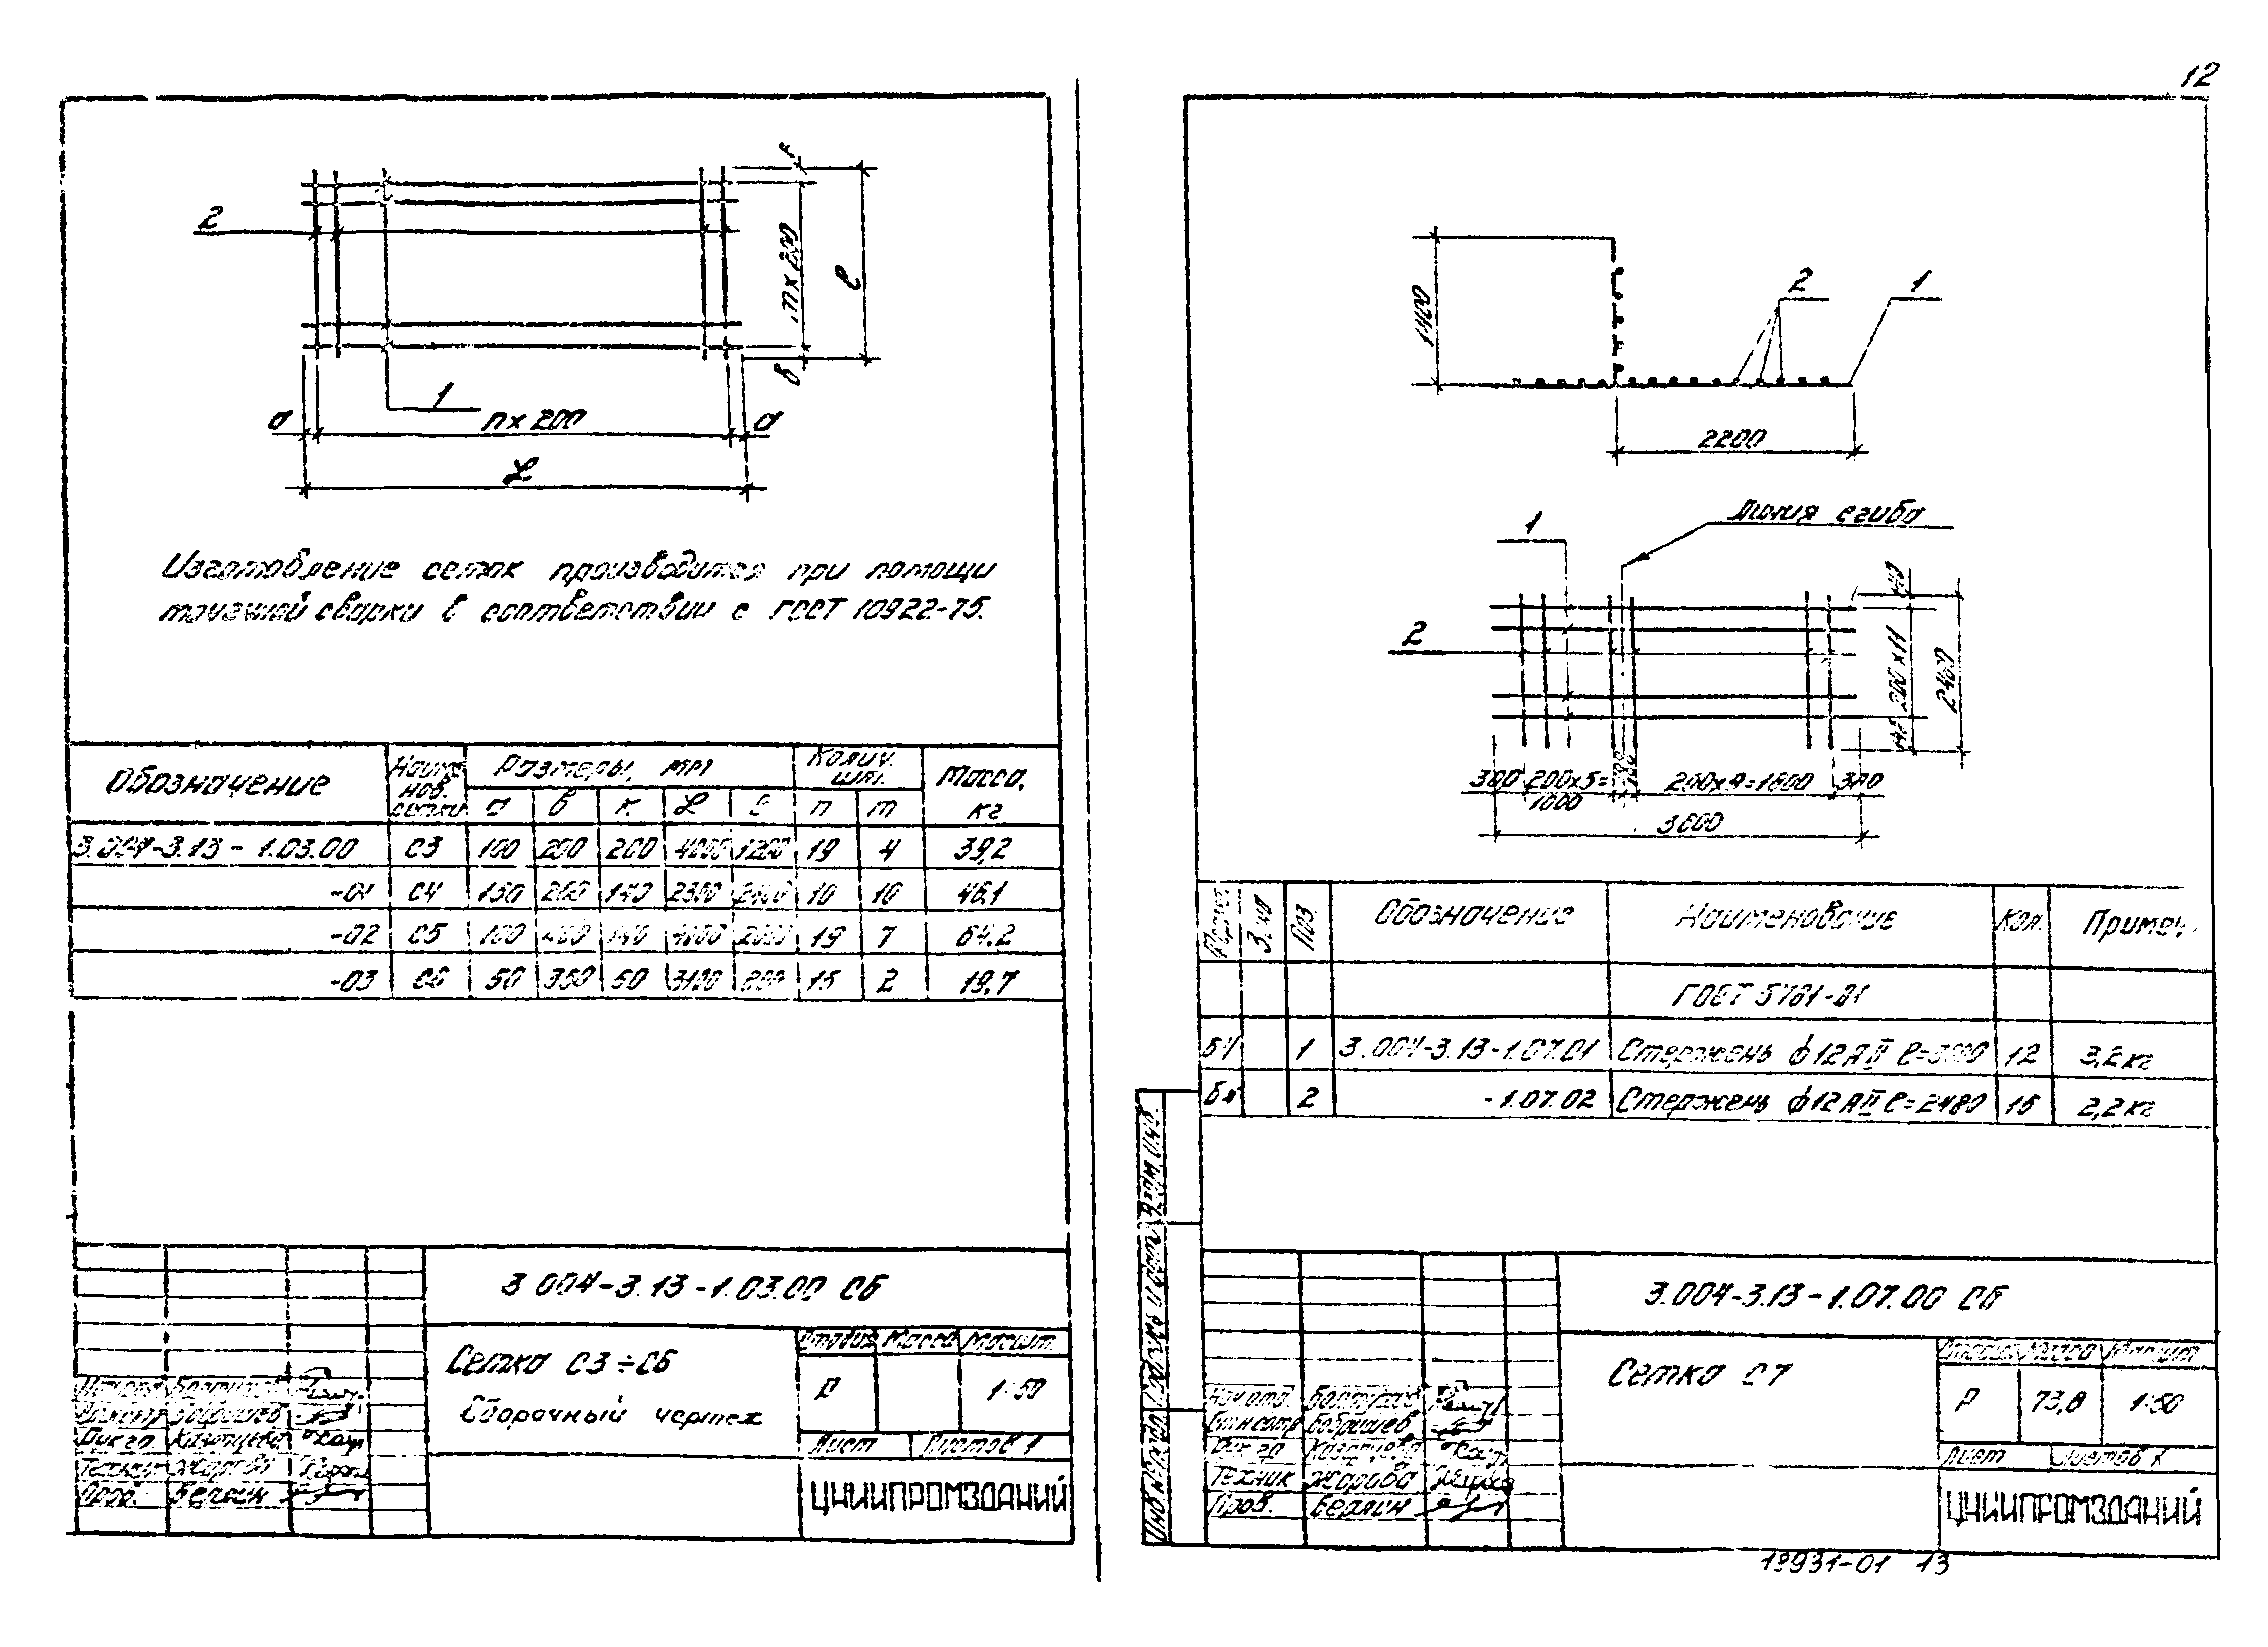 12
2
1
а
n х 200
а
ℒ
к
m х 200
в
ℓ
Изготовление сеток производится при помощи
точечной сварки в соответствии с ГОСТ 10922-75.
Обозначение | Наиме нов. сетки | Размеры, мм | Колич. шт. | Масса, кг
а | в | к | ℒ | ℓ | n | m
3.004-3.13 - 1.03.00 | С3 | 100 | 200 | 200 | 4000 | 1200 | 19 | 4 | 39,2
-01 | С4 | 150 | 140 | 2300 | 10 | 10 | 46,1
-02 | С5 | 100 | 19 | 7 | 64,2
-03 | С6 | 50 | 350 | 50 | 3100 | 15 | 2 | 19,7
3.004-3.13-1.03.00 СБ
Сетка С3÷С6
Сборочный чертеж
Стадия | Масса | Масшт.
Р | 1:50
Лист | Листов 1
Рук.гр. Казанцева
Техник Жарова
Пров. Берлин
ЦНИИПРОМЗДАНИЙ
1400
2
1
2200
Линия сгиба
1
2
200 х 11
2480
300 200х5= 1000
200х9=1800 300
3600
Формат | Зона | Поз. | Обозначение | Наименование | Кол. | Примеч.
ГОСТ 5781-81
БЧ | 1 | 3.004-3.13-1.07.01 | Стержень ф12АII | 12 | 3,2 кг
БЧ | 2 | -1.07.02 | Стержень ф12АII ℓ=2480 | 15 | 2,2 кг
3.004-3.13-1.07.00 СБ
Сетка С7
Стадия | Масса | Масшт.
Р | 73,8 | 1:50
Лист | Листов 1
Нач.отд.
Бобрышев
Рук.гр. Казанцева
Техник Жарова
Пров. Берлин
ЦНИИПРОМЗДАНИЙ
18931-01 13